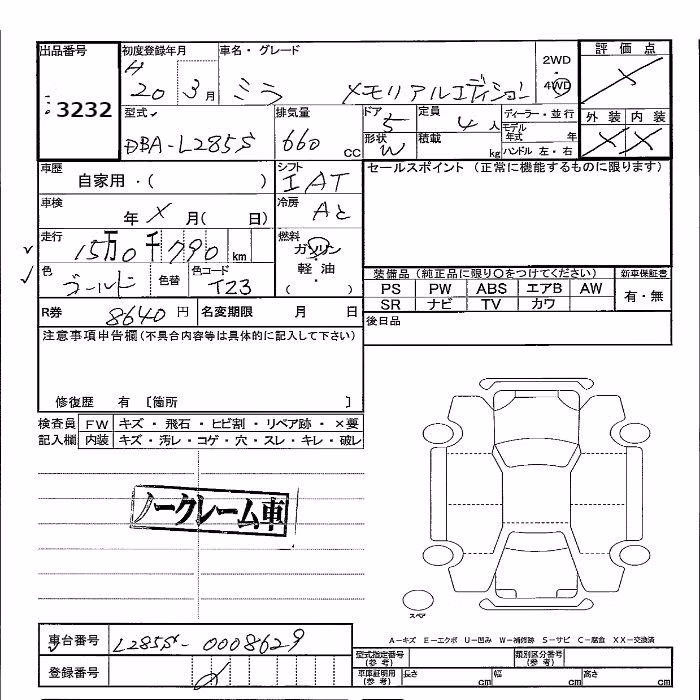 出品番号 3232
初度登録年月 H 20 3月
車名・グレード ミラ メモリアルエディション
2WD・4WD
評価点 ×
外装 × 内装 ×
型式 DBA-L285S
排気量 660 cc
ドア 5
形状 W
定員 4人
積載 kg
ディーラー・並行
モデル年式 年
ハンドル 左・右
車歴 自家用・( )
シフト IAT
セールスポイント (正常に機能するものに限ります)
車検 年 × 月( 日)
冷房 Ac
走行 15万0千790 km
燃料 ガソリン
軽油
( )
色 ゴールド
色替
色コード T23
装備品 (純正品に限り○をつけてください)
新車保証書
PS PW ABS エアB AW
SR ナビ TV カワ
有・無
R券 8640 円
名変期限 月 日
後日品
注意事項申告欄(不具合内容等は具体的に記入して下さい)
修復歴 有 〔箇所 〕
検査員記入欄
FW キズ・飛石・ヒビ割・リペア跡・×要
内装 キズ・汚レ・コゲ・穴・スレ・キレ・破レ
ノークレーム車
スペア
A-キズ E-エクボ U-凹み W-補修跡 S-サビ C-腐食 XX-交換済
車台番号 L285S-0008629
登録番号
型式指定番号(参考)
類別区分番号(参考)
車庫証明用(参考) 長さ cm 幅 cm 高さ cm